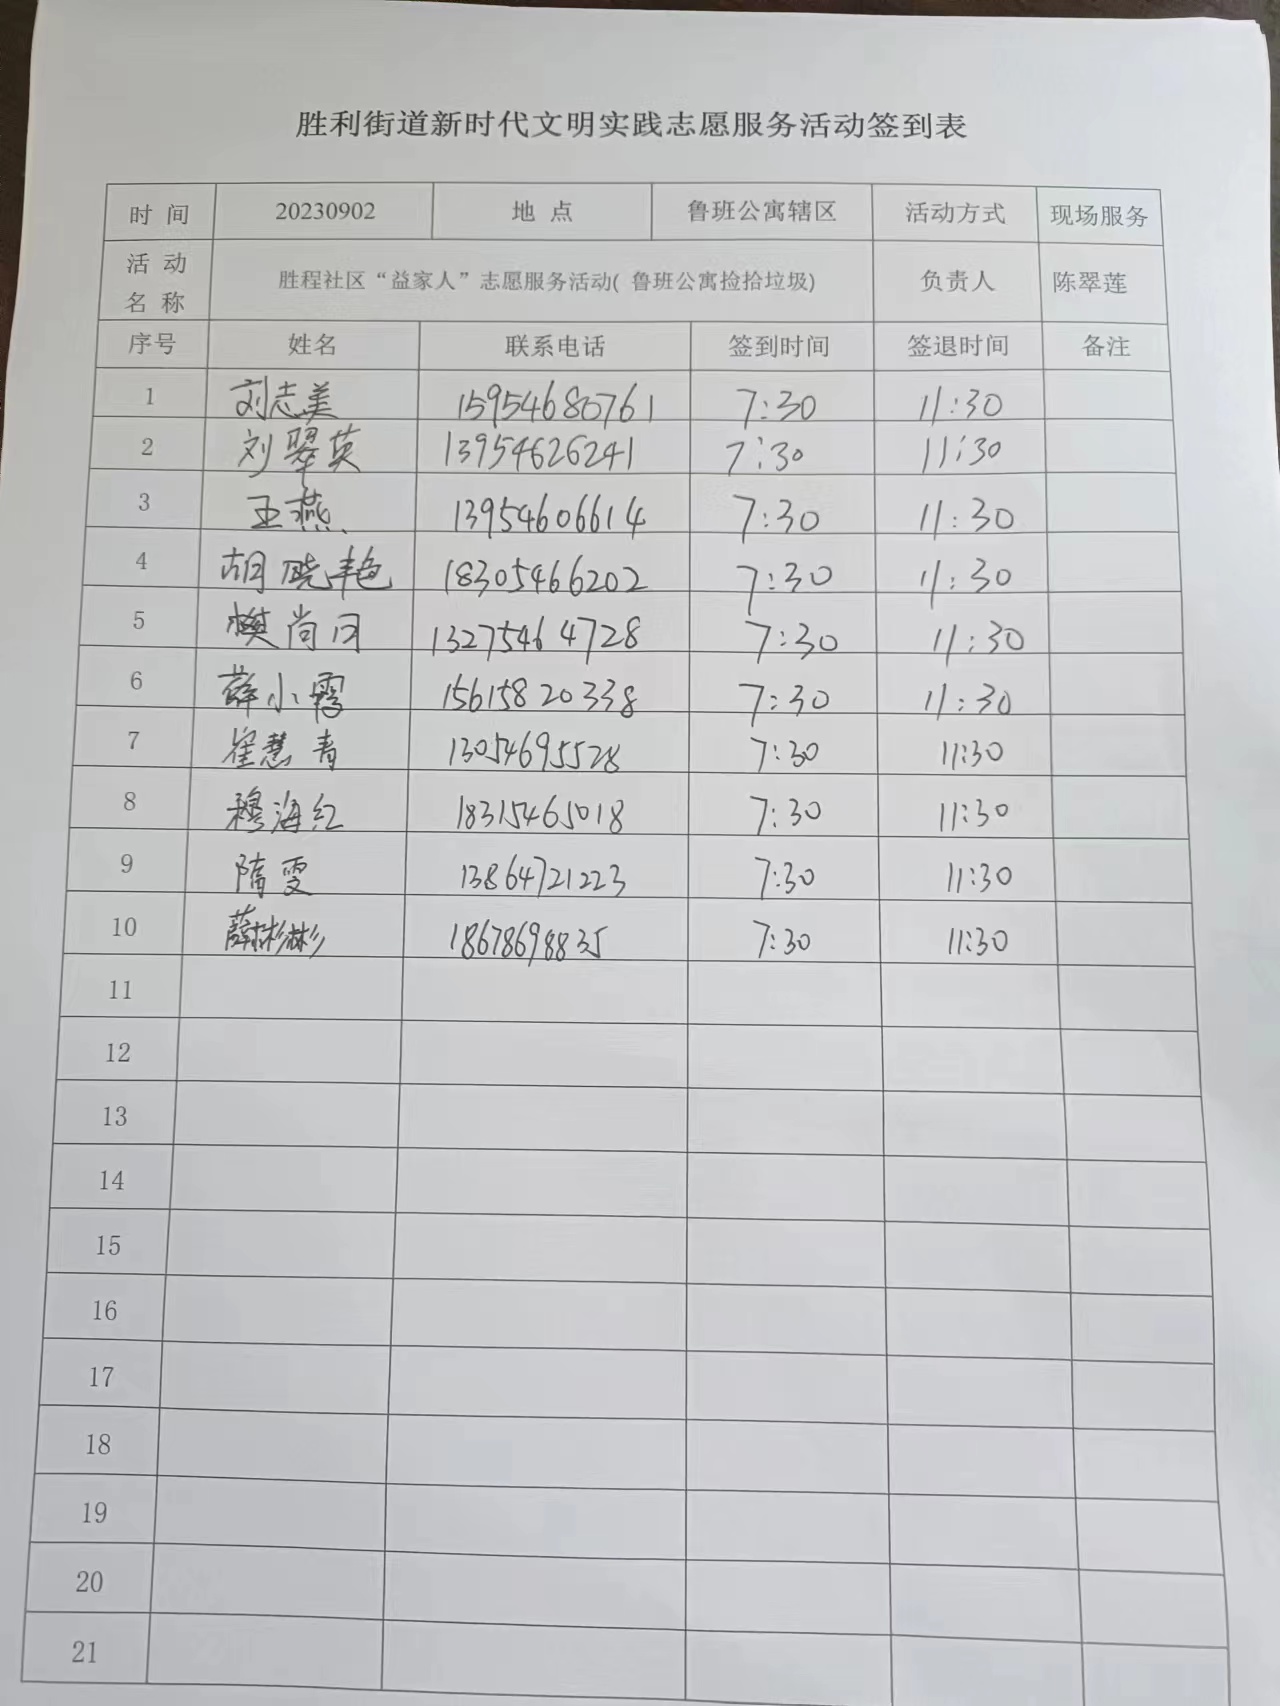 胜利街道新时代文明实践志愿服务活动签到表
时 间 20230902 地 点 鲁班公寓辖区 活动方式 现场服务
活 动
名 称 胜程社区“益家人”志愿服务活动( 鲁班公寓捡拾垃圾) 负责人 陈翠莲
序号 姓名 联系电话 签到时间 签退时间 备注
1 刘志美 15954680761 7:30 11:30
2 刘翠英 13954626241 7:30 11:30
3 王燕 13954606614 7:30 11:30
4 胡晓艳 18305466202 7:30 11:30
5 樊尚同 13275464728 7:30 11:30
6 薛小霞 15615820338 7:30 11:30
7 崔慧青 13054695528 7:30 11:30
8 穆海红 18315465018 7:30 11:30
9 隋雯 13864721223 7:30 11:30
10 薛彬彬 18678698835 7:30 11:30
11
12
13
14
15
16
17
18
19
20
21